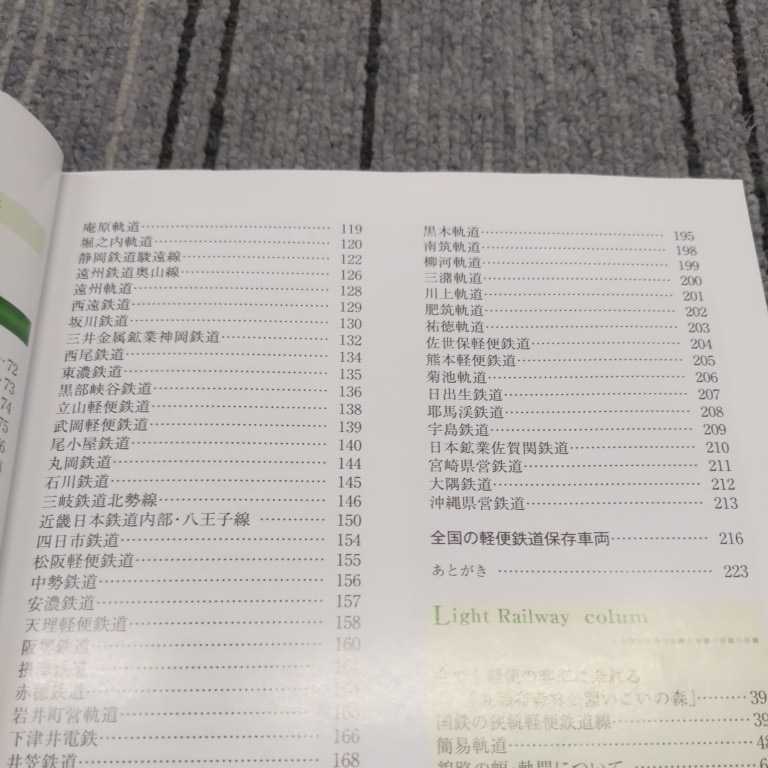 72
73
74
75
庵原軌道 119
堀之内軌道 120
静岡鉄道駿遠線 122
遠州鉄道奥山線 126
遠州軌道 128
西遠鉄道 129
坂川鉄道 130
三井金属鉱業神岡鉄道 132
西尾鉄道 134
東濃鉄道 135
黒部峡谷鉄道 136
立山軽便鉄道 138
武岡軽便鉄道 139
尾小屋鉄道 140
丸岡鉄道 144
石川鉄道 145
三岐鉄道北勢線 146
近畿日本鉄道内部・八王子線 150
四日市鉄道 154
松阪軽便鉄道 155
中勢鉄道 156
安濃鉄道 157
天理軽便鉄道 158
鉄道 160
赤穂鉄道
岩井町営軌道
下津井電鉄 166
井笠鉄道 168
黒木軌道 195
南筑軌道 198
柳河軌道 199
三潴軌道 200
川上軌道 201
肥筑軌道 202
祐徳軌道 203
佐世保軽便鉄道 204
熊本軽便鉄道 205
菊池軌道 206
日出生鉄道 207
耶馬渓鉄道 208
宇島鉄道 209
日本鉱業佐賀関鉄道 210
宮崎県営鉄道 211
大隅鉄道 212
沖縄県営鉄道 213
全国の軽便鉄道保存車両 216
あとがき 223
Light Railway colum
いこいの森」 39
国鉄の狭軌軽便鉄道線 39
簡易軌道 48